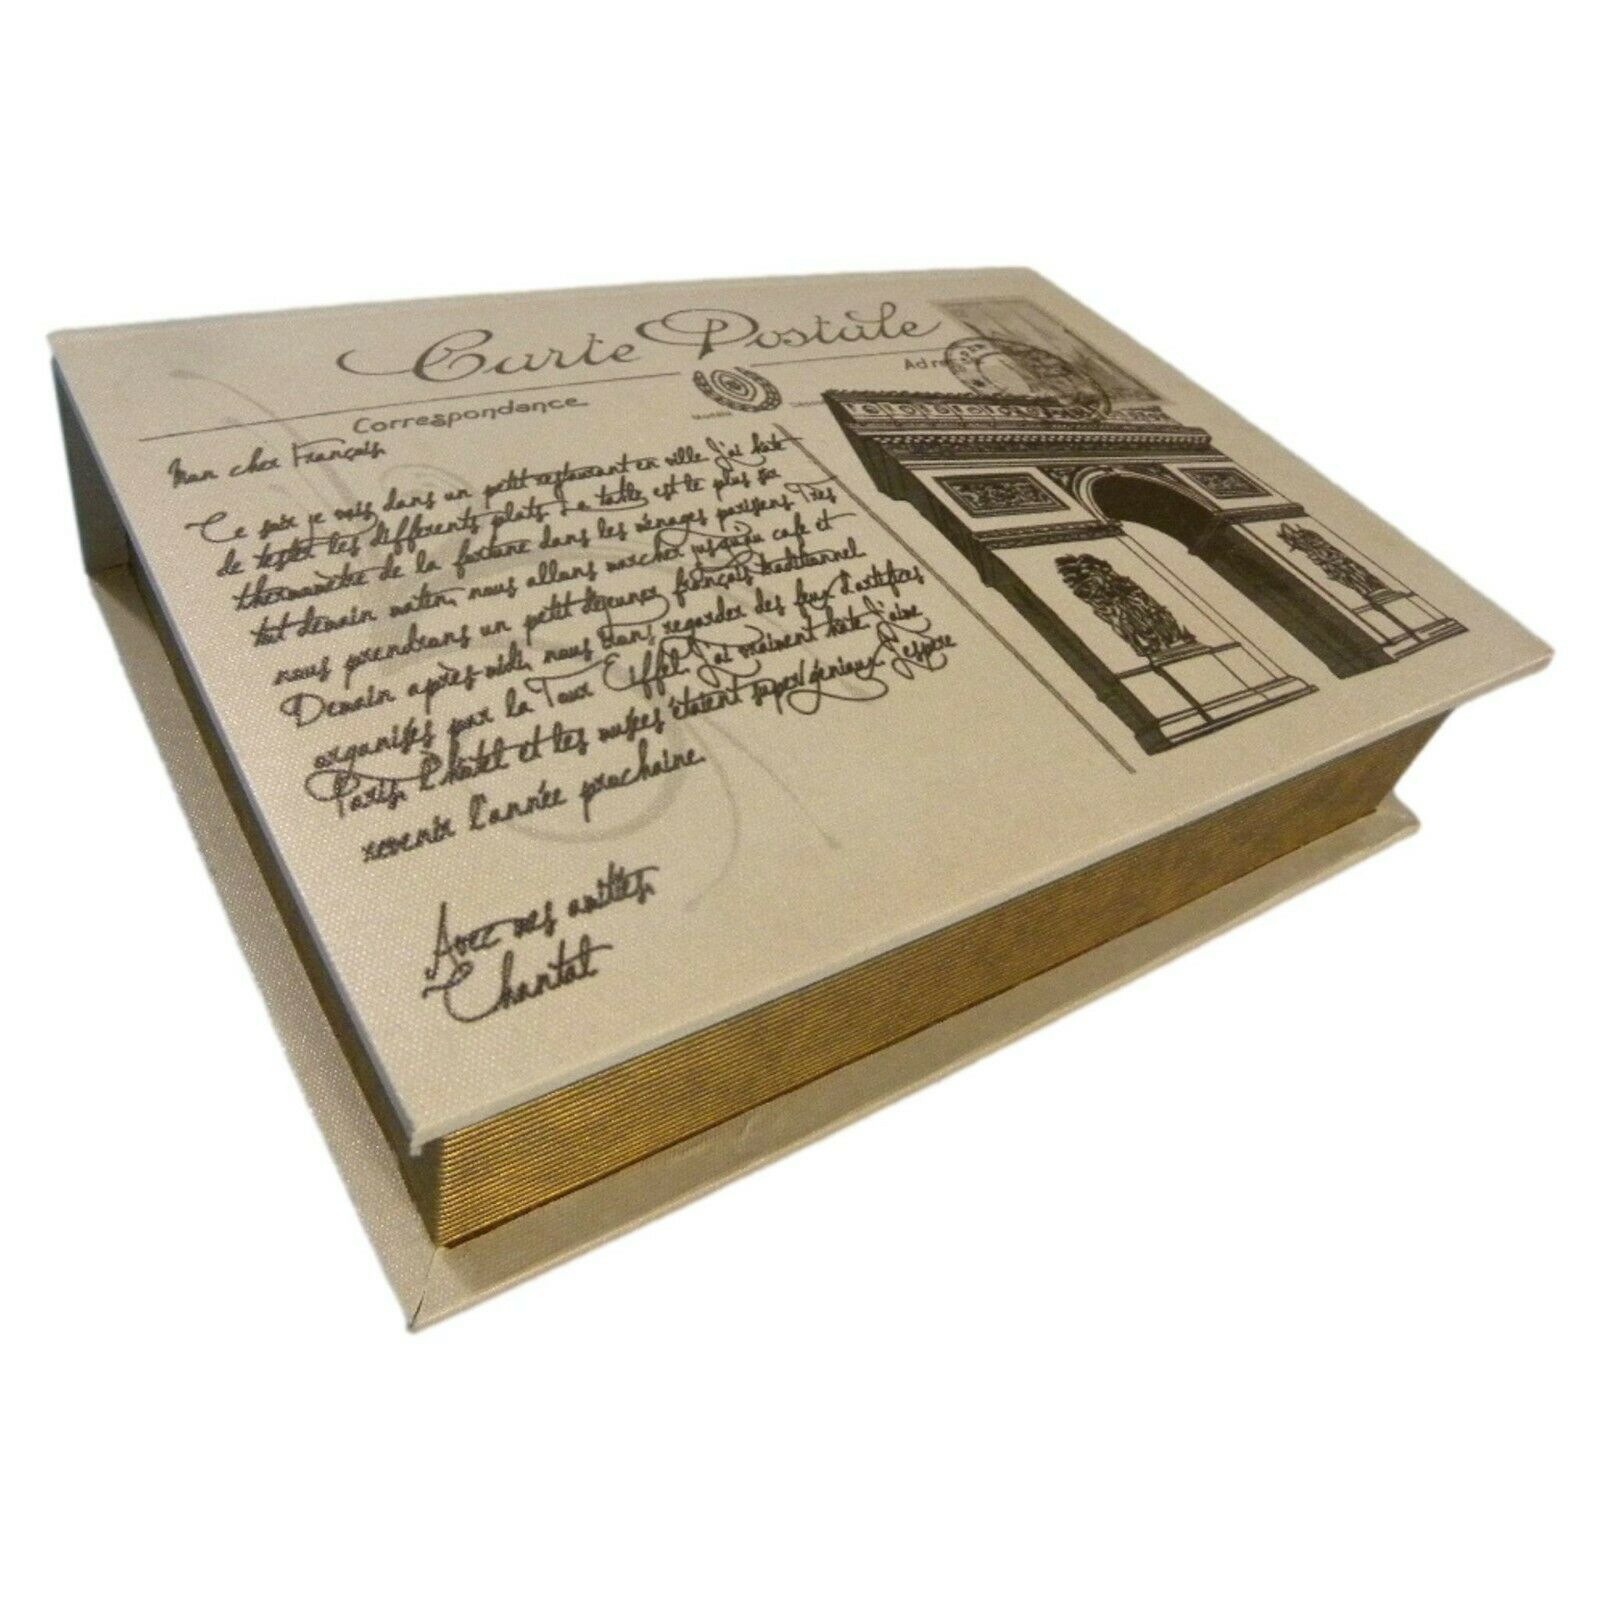 Carte Postale
Correspondance
Mon cher François,
Ce soir je vais dans un petit restaurant en ville. J'ai hâte
de tester les différents plats. La table est le plus sûr
thermomètre de la fortune dans les ménages parisiens. Très
tôt demain matin, nous allons marcher jusqu'au café et
nous prendrons un petit déjeuner français traditionnel.
Demain après midi, nous irons regarder des feux d'artifices
organisés par la Tour Eiffel. J'ai vraiment hâte. J'aime
Paris. L'hôtel et les musées étaient super/géniaux. J'espère
revenir l'année prochaine.
Avec mes amitiés,
Chantal